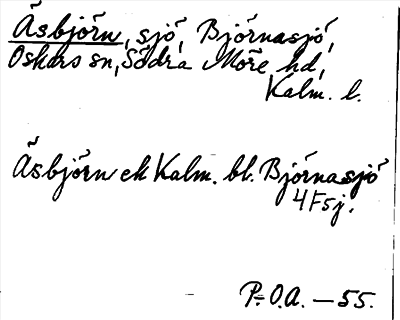 Äsbjörn, sjö, Björnasjö,
Oskars sn, Södra Möre hd,
Kalm. l.
Äsbjörn ek Kalm. bl. Björnasjö
4 F 5 j.
P. O. A. – 55.